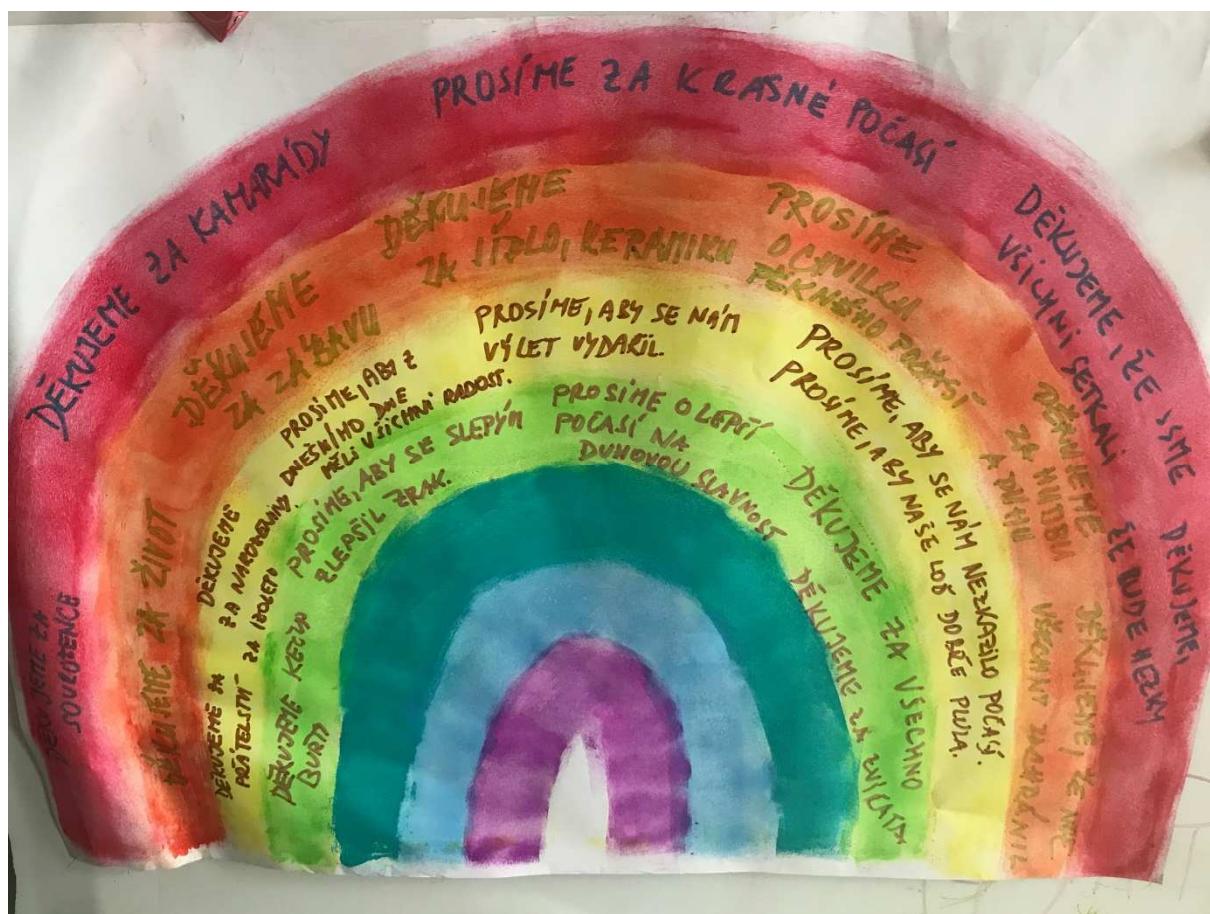 DĚKUJEME ZA
SOUROZENCE
DĚKUJEME ZA KAMARÁDY
PROSÍME ZA KRASNÉ POČASÍ
DĚKUJEME, ŽE JSME
VŠICHNI SETKALI
DĚKUJEME,
ŽE BUDE HEZKY
DĚKUJEME ZA ŽIVOT
DĚKUJEME
ZA ZÁBAVU
DĚKUJEME
ZA JÍDLO, KERAMIKU
PROSÍME
O CHVILKU
PĚKNÉHO POČASÍ
DĚKUJEME
ZA HUDBU
A DUHU
DĚKUJEME, ŽE
VŠECHNY
DĚKUJEME ZA
PŘÁTELSTVÍ
DĚKUJEME
ZA NAROZENINY
ZA
PROSÍME, ABY Z
DNEŠNÍHO DNE
MĚLI VŠICHNI RADOST.
PROSÍME, ABY SE NÁM
VÝLET VYDAŘIL.
PROSÍME, ABY SE NÁM NEZKAZILO POČASÍ.
PROSÍME, ABY NAŠE LOĎ DOBŘE PLULA.
DĚKUJEME
BURTY
PROSÍME, ABY SE SLEPÝM
ZLEPŠIL ZRAK.
PROSÍME O LEPŠÍ
POČASÍ NA
DUHOVOU SLAVNOST
DĚKUJEME ZA VŠECHNO
DĚKUJEME ZA ZVÍŘATA